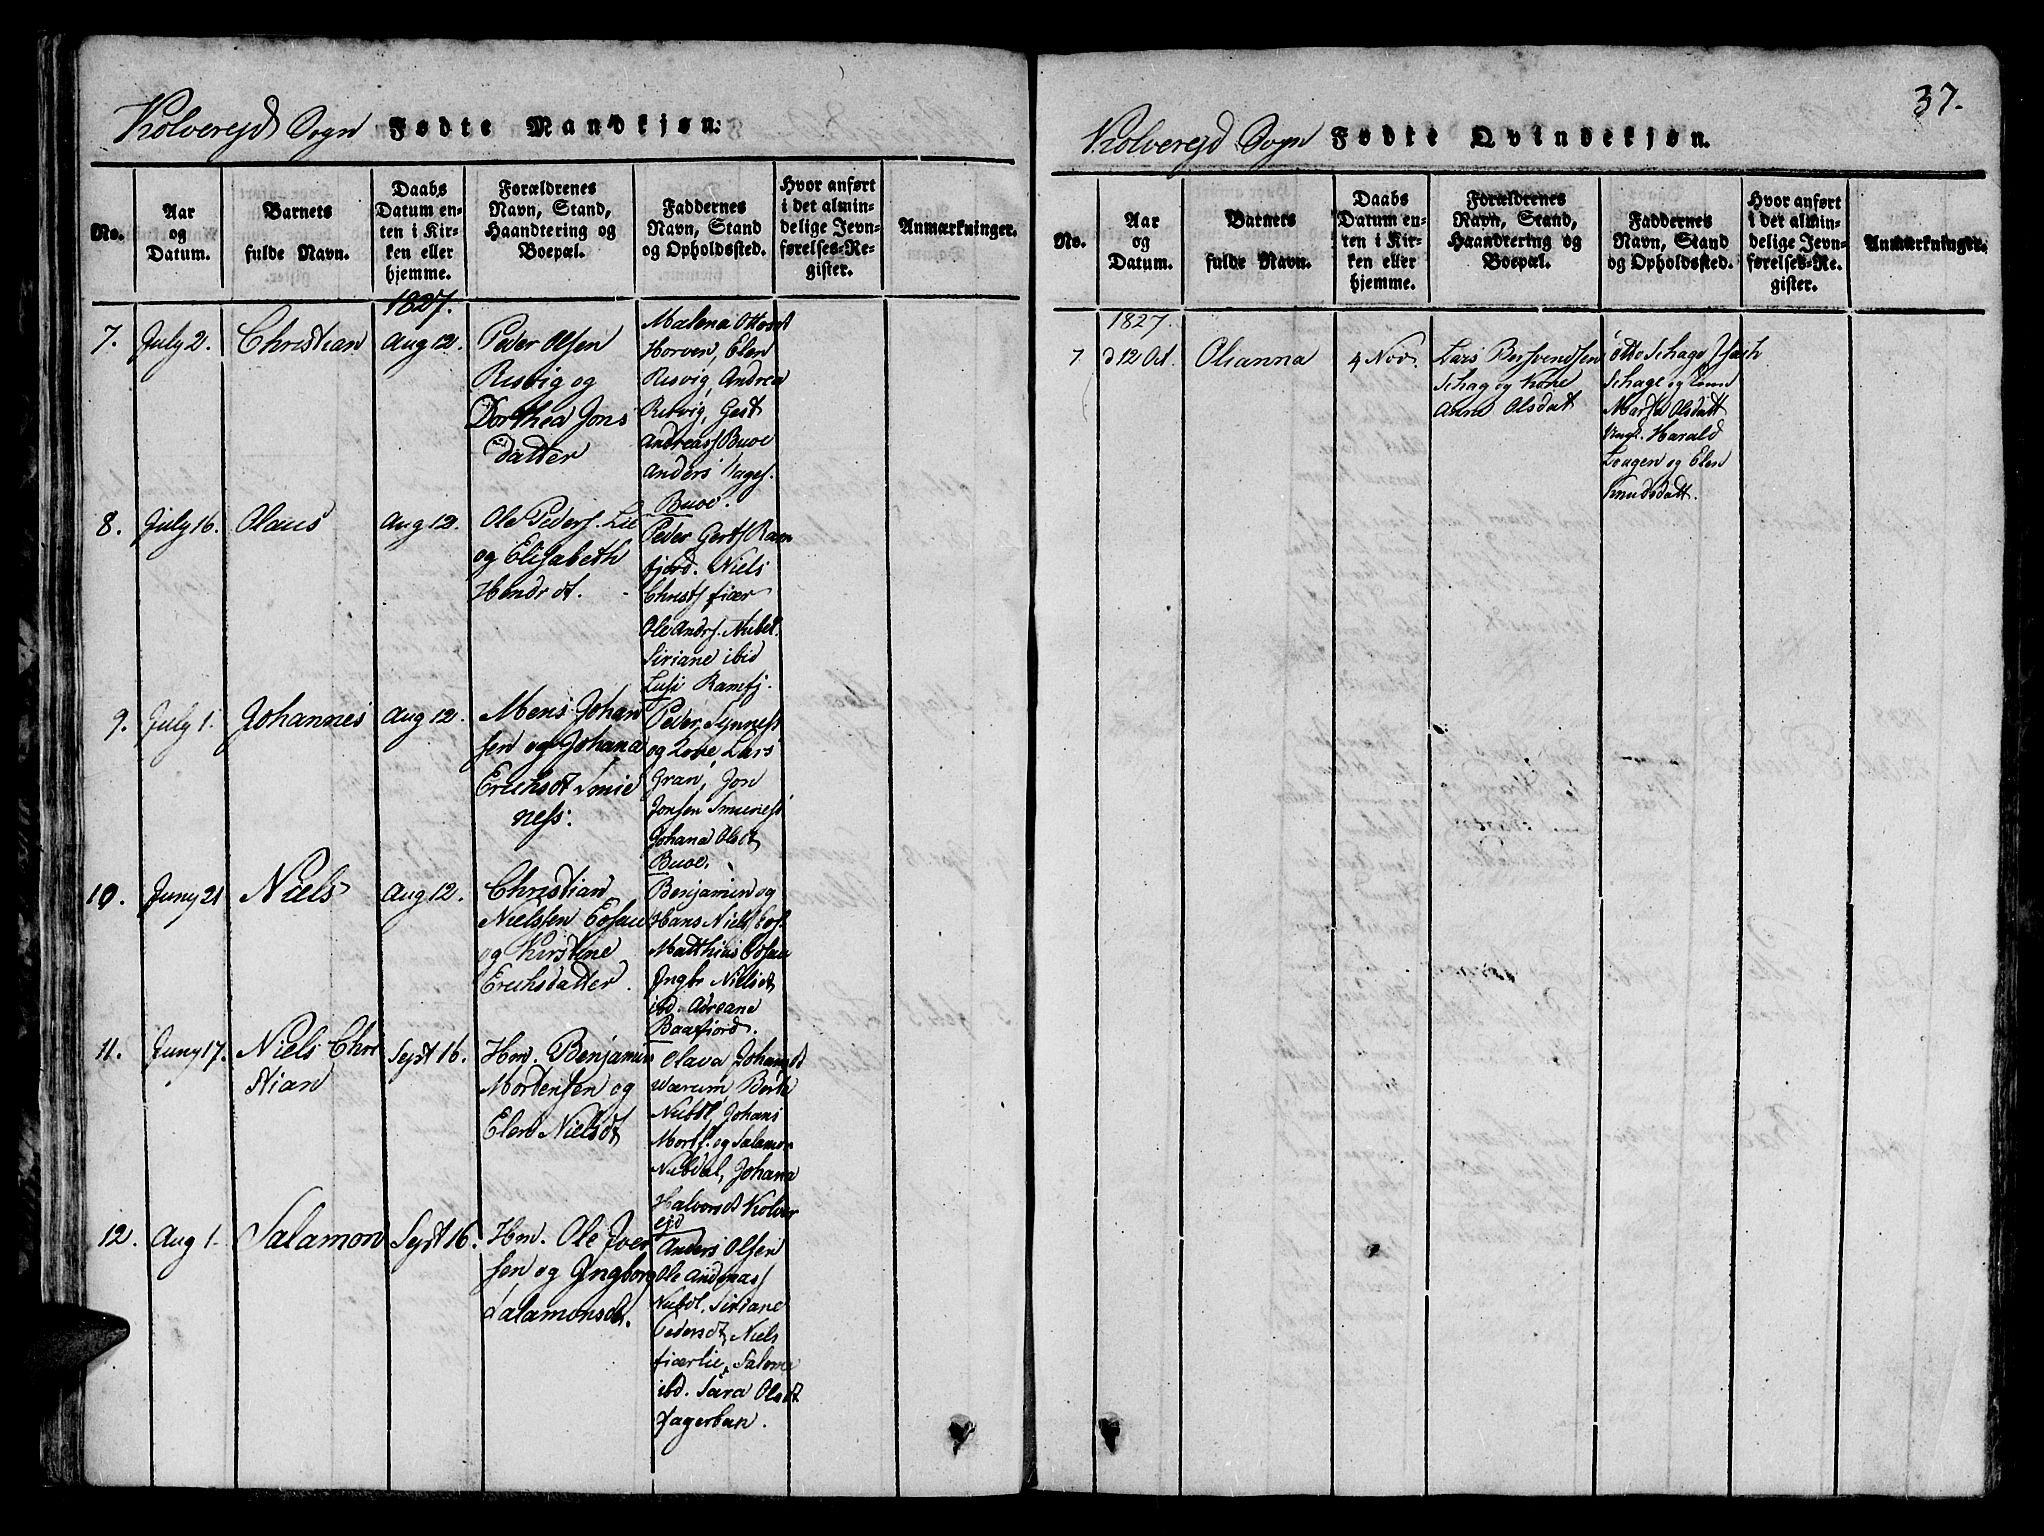 Kolverejd Sogn Fødte Mandkjøn.
No.
Aar
og
Datum.
Barnets
fulde Navn.
Daabs
Datum en-
ten i Kir-
ken eller
hjemme.
Forældrenes
Navn, Stand,
Haandtering og
Boepæl.
Faddernes
Navn, Stand
og Opholdssted.
Hvor anført
i det almin-
delige Jevn-
førelses-Re-
gister.
Anmærkninger.
1827.
7.
July 2.
Christian
Aug 12.
Peder Olsen
Risvig og
Dorthea Jons
datter
Malena Ottosdt
Horven, Elen
Risvig, Andrea
Risvig, Gest
Andreass Buoe
Anders
Buoe.
8.
July 16.
Olaus
Aug 12.
Ole Peders. Lie
og Elisabeth
Hendr dt.
Peder Gerts Ram
fjord. Niels
Christs fiær
Ole Andrs. Nubdl.
Siriane ibid
Lusi Ramfj.
9.
July 1.
Johannes
Aug 12.
Mens Johan
sen og Johana
Erichsdt Smie
ness.
Peder Synness
og Kone, Lars
Gran, Jon
Jonsen Smieness
Johana Olsdt
Buoe.
10.
Juny 21
Niels
Aug 12.
Christian
Nielssen Eosau
og Kirstine
Erichsdatter.
Benjamin og
Hans Niels Eos.
Matthias Eosau
Ingbr Nielsdt
ibd. Adreane
Baafiord.
11.
Juny 17.
Niels Chri
stian
Sept 16.
Hm. Benjamin
Mortensen og
Elen Nielsdt
Olava Johansdt
Værum Berte
Nubdl, Johans
Morts. og Salamon
Nubdal, Johana
Halvorsdt Kolver
ejd
12.
Aug 1.
Salamon
Sept 16.
Hm. Ole Iver
sen og Ingborg
Salamonsdt.
Anders Olsen
Ole Andreass
Nubdl. Siriane
Pedersdt, Niels
fiærlie, Salome
ibd. Sara Olsdt
Fagerban.
37.
Kolverejd Sogn Fødte Qvindekjøn.
No.
Aar
og
Datum.
Barnets
fulde Navn.
Daabs
Datum en-
ten i Kir-
ken eller
hjemme.
Forældrenes
Navn, Stand,
Haandtering og
Boepæl.
Faddernes
Navn, Stand
og Opholdssted.
Hvor anført
i det almin-
delige Jevn-
førelses-Re-
gister.
Anmærkninger.
1827.
7
d 12 Oct.
Olianna
4 Nov.
Lars Bersvendsen
Schag og Kone
Anne Olsdat
Otto Schage Isach
Schage og Kone
Martha Olsdatt
Ungk. Harald
Laugen og Elen
Knudsdatt.